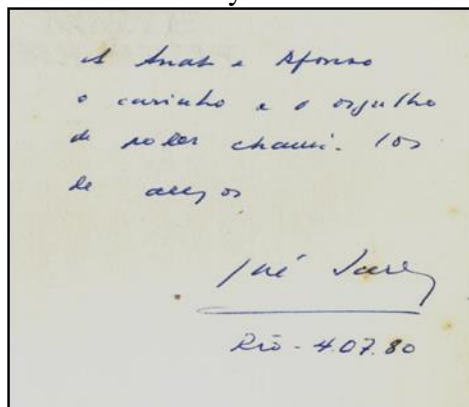 A Anah e Afonso
o carinho e o orgulho
de poder chamá-los
de amigos
José Sarney
Rio - 4.07.80